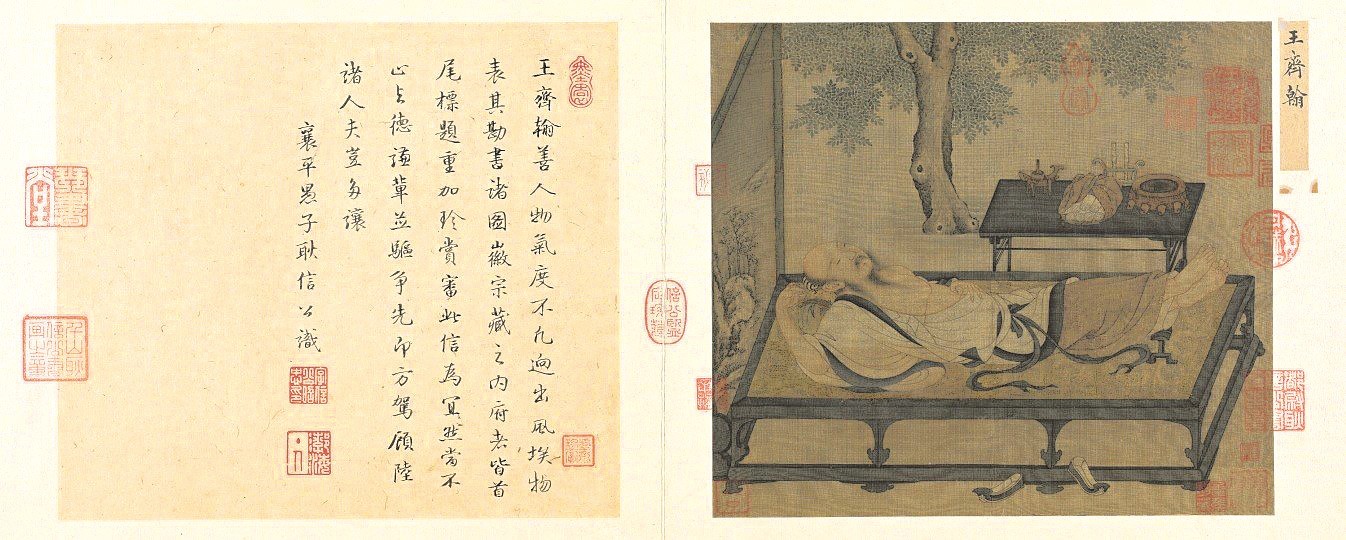 王齊翰
王齊翰善人物氣度不凡迥出風埃物
表其勘書諸圖徽宗藏之內府者皆首
尾標題重加珍賞審此信為冝然當不
止与德謙輩並驅爭先即方駕顧陸
諸人夫豈多讓
襄平愚子耿信公識